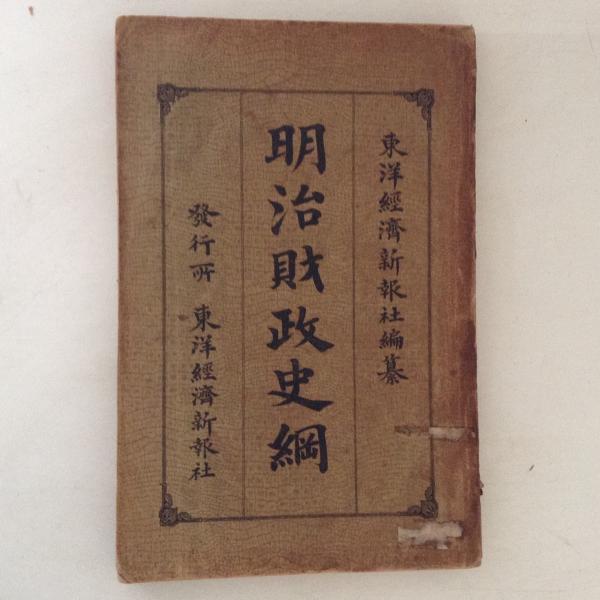 東洋經濟新報社編纂
明治財政史綱
發行所 東洋經濟新報社